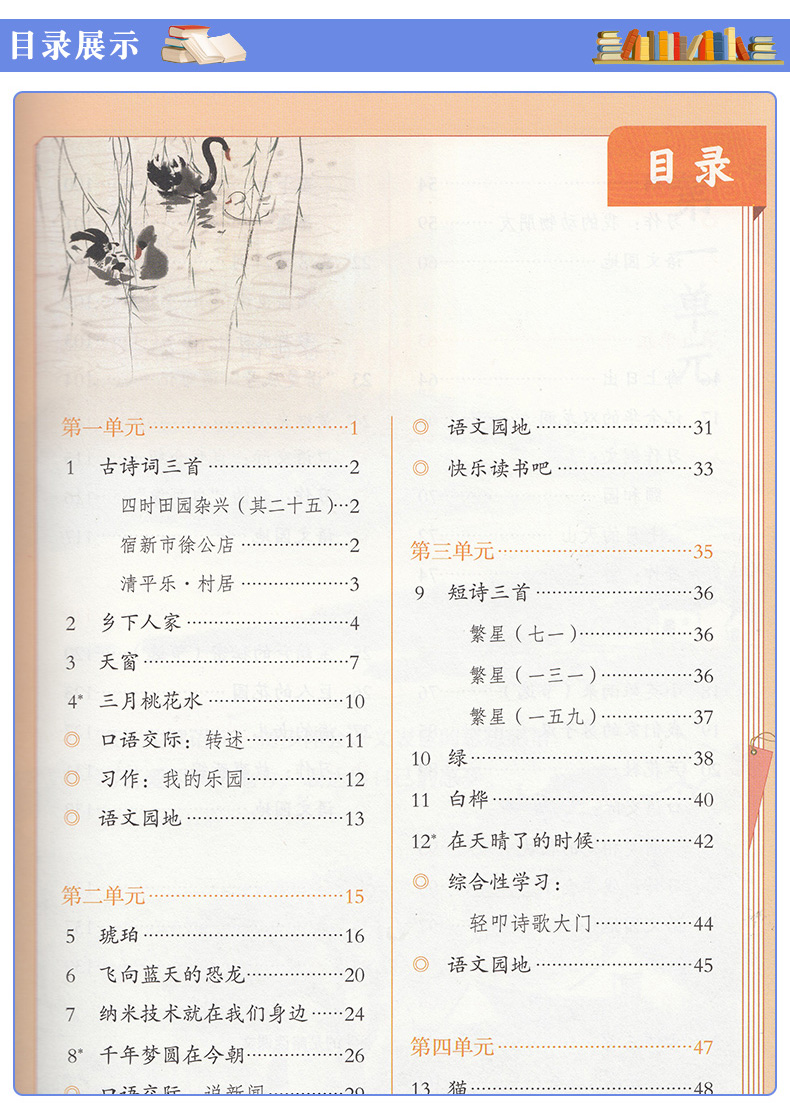 目录展示
目录
第一单元……1
1 古诗词三首……2
四时田园杂兴（其二十五）…2
宿新市徐公店……2
清平乐·村居……3
2 乡下人家……4
3 天窗……7
4* 三月桃花水……10
◎ 口语交际：转述……11
◎ 习作：我的乐园……12
◎ 语文园地……13
第二单元……15
5 琥珀……16
6 飞向蓝天的恐龙……20
7 纳米技术就在我们身边……24
8* 千年梦圆在今朝……26
◎ 口语交际：说新闻……29
◎ 语文园地……31
◎ 快乐读书吧……33
第三单元……35
9 短诗三首……36
繁星（七一）……36
繁星（一三一）……36
繁星（一五九）……37
10 绿……38
11 白桦……40
12* 在天晴了的时候……42
◎ 综合性学习：
轻叩诗歌大门……44
◎ 语文园地……45
第四单元……47
13 猫……48